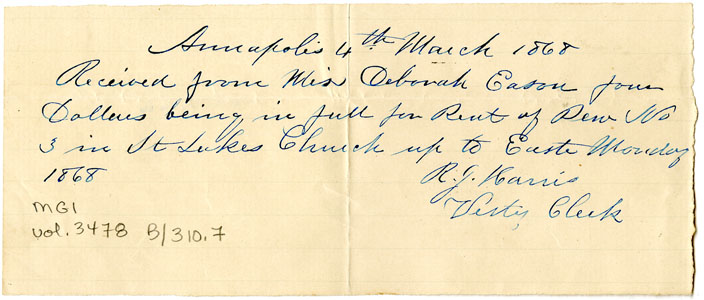 Annapolis 4th March 1868
Received from Miss Deborah Eason four
Dollars being in full for Rent of Pew No
3 in St Lukes Church up to Easte Monday
1868
R. J. Harris
Vesty Clerk
MG1
vol. 3478 B/310.7